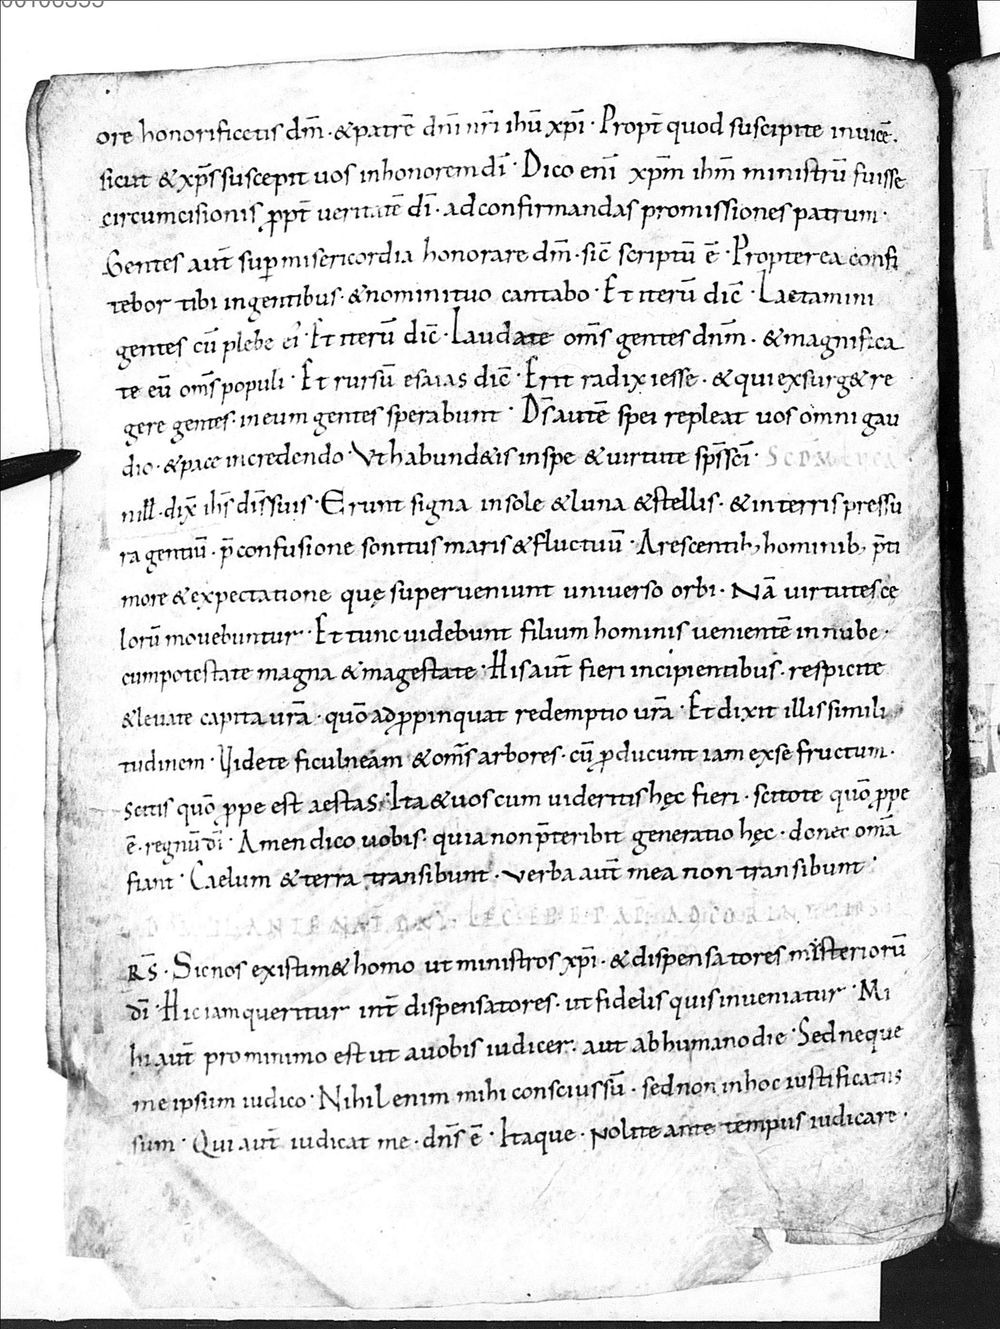 ore honorificetis dm̄ · & patrē dn̄i nr̄i ihū xp̄i · Propt̄ quod suscipite inuicē ·
sicut & xp̄s suscepit uos inhonorem dī · Dico enī xp̄m ihm̄ ministrū fuisse
circumcisionis ꝓpt̄ ueritatē dī · ad confirmandas promissiones patrum ·
Gentes aut̄ suꝑ misericordia honorare dm̄ · sic̄ scriptū ē · Propterea confi
tebor tibi ingentibus · & nomini tuo cantabo · Et iterū dic̄ · Laetamini
gentes cū plebe ei' · Et iterū dic̄ · Laudate om̄s gentes dn̄m · & magnifica
te eū om̄s populi · Et rursū esaias dic̄ · Erit radix iesse · & qui exsurg& re
gere gentes · in eum gentes sperabunt · Ds̄ autē spei repleat uos omni gau
dio · & pace incredendo Vt habund&is inspe & uirtute sp̄s sc̄i · SCDM LVCA
nill · dix̄ ihs̄ dis̄ suis · Erunt signa insole & luna & stellis · & interris pressu
ra gentiū · p̄ confusione sonitus maris & fluctuū · Arescentib; hominib; p̄ ti
more & expectatione quę superueniunt uniuerso orbi · Nā uirtutes cę
lorū mouebuntur · Et tunc uidebunt filium hominis uenientē in nube ·
cum potestate magna & magestate · His aut̄ fieri incipientibus · respicite
& leuate capita ur̄a · quō adꝓpinquat redemptio ur̄a · Et dixit illis simili
tudinem · Videte ficulneam & om̄s arbores · cū ꝓducunt iam exse fructum ·
scitis quō ꝓpe est aestas · Ita & uos cum uideritis hęc fieri · scitote quō ꝓpe
ē · regnū dī · Amen dico uobis · quia non p̄teribit generatio hęc · donec om̄a
fiant · Caelum & terra transibunt · uerba aut̄ mea non transibunt ·
ANTE NAT DNI · LEC EP B PAP AD COR
RS̄ · Sic nos existim& homo ut ministros xp̄i · & dispensatores misteriorū
dī · Hic iam queritur int̄ dispensatores · ut fidelis quis inueniatur · Mi
hi aut̄ pro minimo est ut auobis iudicer · aut ab humano die · Sed neque
me ipsum iudico · Nihil enim mihi conscius sū · sed non in hoc iustificatus
sum · Qui aut̄ iudicat me · dn̄s ē · Itaque · nolite ante tempus iudicare ·